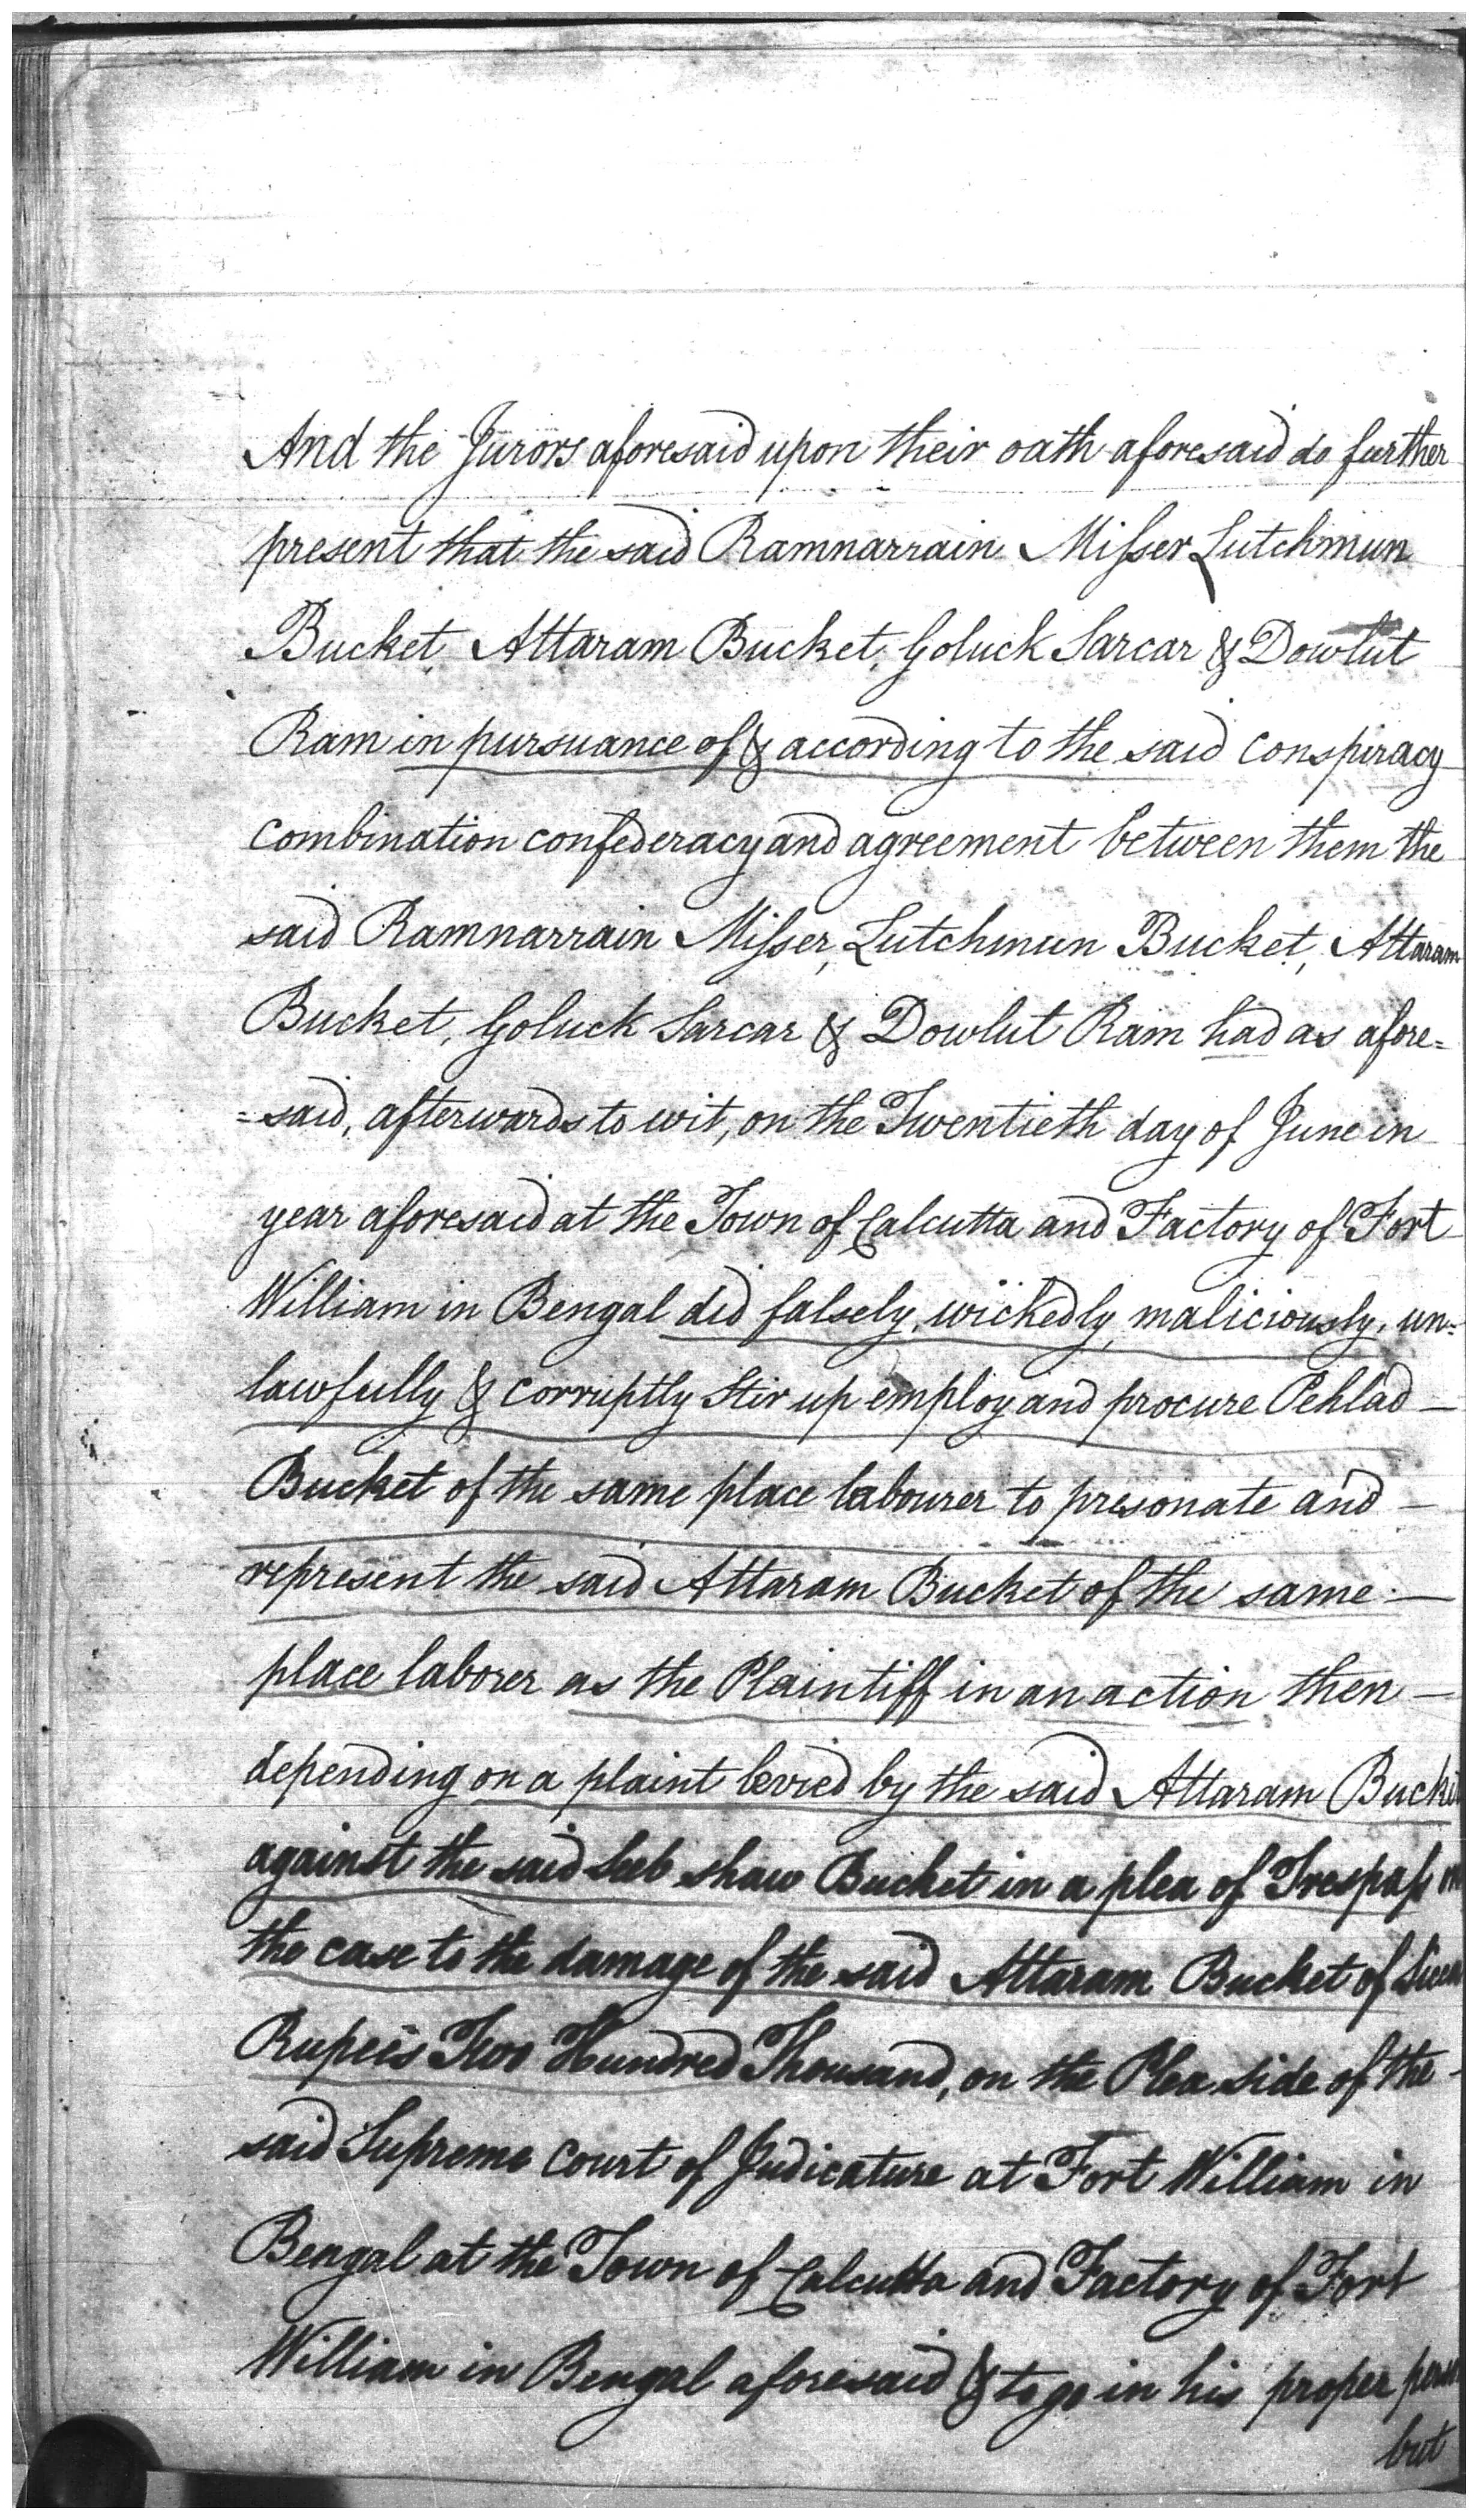 And the Jurors aforesaid upon their oath aforesaid do further
present that the said Ramnarrain Misser Lutchmun
Bucket, Attaram Bucket, Goluck Sarcar & Dowlut
Ram in pursuance of & according to the said conspiracy
combination confederacy and agreement between them the
said Ramnarrain Misser, Lutchmun Bucket, Attaram
Bucket, Goluck Sarcar & Dowlut Ram had as afore=
=said, afterwards to wit, on the Twentieth day of June in
year aforesaid at the Town of Calcutta and Factory of Fort
William in Bengal did falsely, wickedly, maliciously, un=
lawfully & corruptly stir up employ and procure Pehlad —
Bucket of the same place labourer to presonate and —
represent the said Attaram Bucket of the same —
place laborer as the Plaintiff in an action then —
depending on a plaint levied by the said Attaram Bucket
against the said Seeb shaw Bucket in a plea of Trespass on
the case to the damage of the said Attaram Bucket of Sicca
Rupees Two Hundred Thousand, on the Plea side of the -
said Supreme Court of Judicature at Fort William in
Bengal at the Town of Calcutta and Factory of Fort
William in Bengal aforesaid & to go in his proper person
but